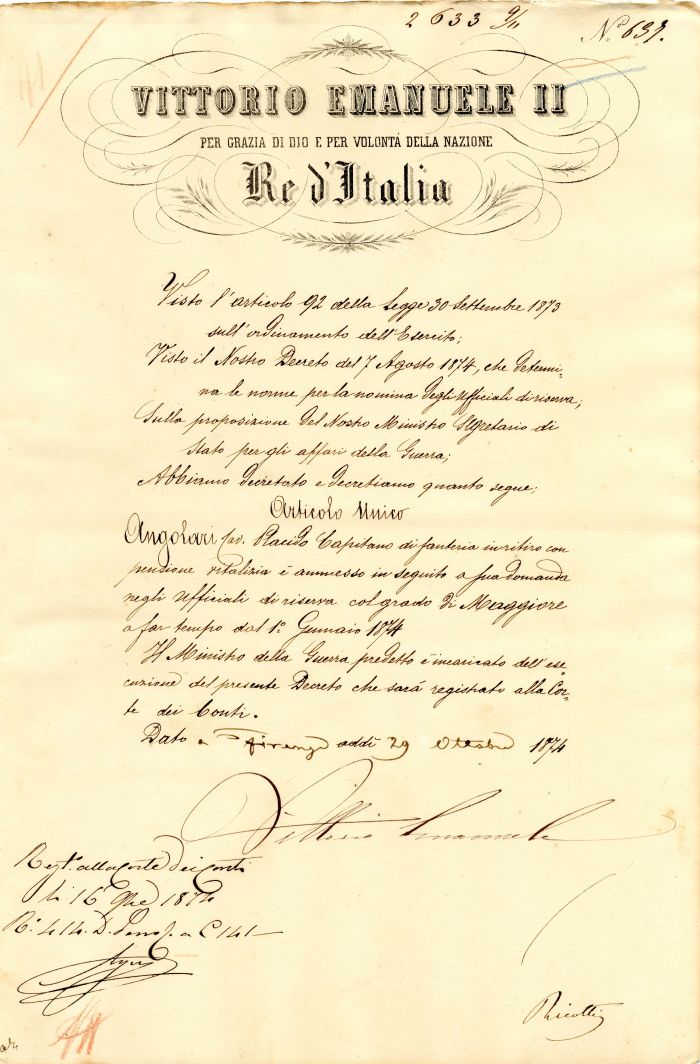 2633 9/11
N.º 637.
VITTORIO EMANUELE II
PER GRAZIA DI DIO E PER VOLONTÁ DELLA NAZIONE
Re d'Italia
Visto l'articolo 92 della Legge 30 Settembre 1873
sull'ordinamento dell'Esercito;
Visto il Nostro Decreto del 7 Agosto 1874, che determi-
na le norme per la nomina degli Ufficiali di riserva;
Sulla proposizione del Nostro Ministro Segretario di
Stato per gli affari della Guerra;
Abbiamo decretato e decretiamo quanto segue;
Articolo Unico
Angolari Cav. Placido Capitano di fanteria in ritiro con
pensione vitalizia è ammesso in seguito a sua domanda
negli Ufficiali di riserva col grado di Maggiore
a far tempo dal 1º Gennaio 1874
Il Ministro della Guerra predetto è incaricato dell'ese-
cuzione del presente Decreto che sarà registrato alla Cor-
te dei Conti.
Dato a Firenze addì 29 Ottobre 1874
Vittorio Emanuele
Regt.º alla Corte dei Conti
li 16 9bre 1874
Ricotti